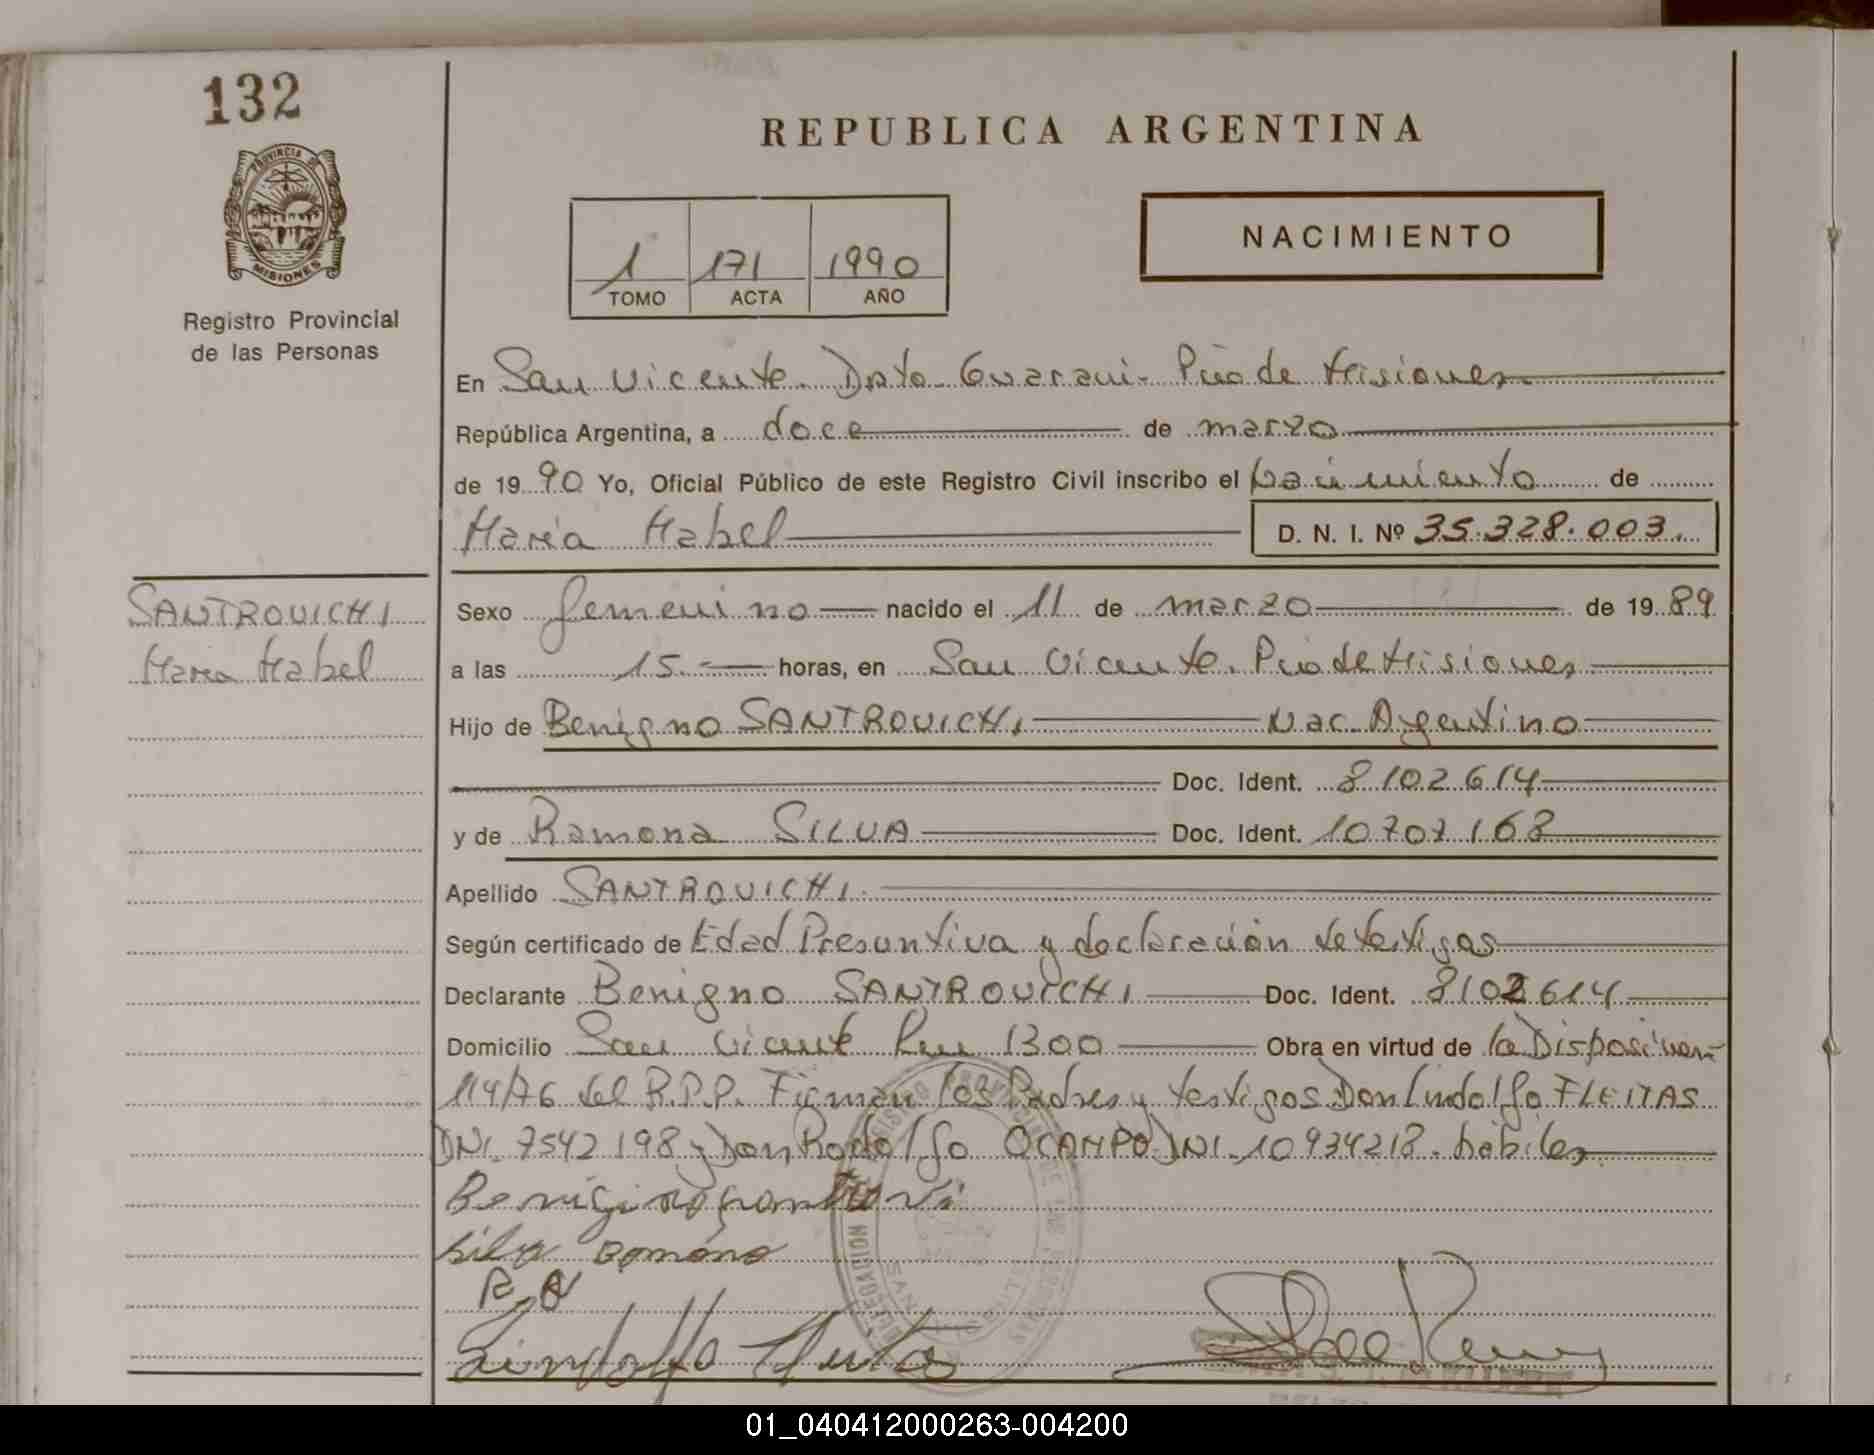 132
REPUBLICA ARGENTINA
PROVINCIA DE
MISIONES
Registro Provincial
de las Personas
1 171 1990
TOMO ACTA AÑO
NACIMIENTO
En San Vicente. Dpto. Guaraní. Pcia de Misiones
República Argentina, a doce de marzo
de 1990 Yo, Oficial Público de este Registro Civil inscribo el Nacimiento de
María Mabel D. N. I. Nº 35.328.003.
SANTROVICHI
María Mabel
Sexo femenino nacido el 11 de marzo de 1989
a las 15.- horas, en San Vicente. Pcia de Misiones
Hijo de Benigno SANTROVICHI Nac. Argentino
Doc. Ident. 8102614
y de Ramona SILVA Doc. Ident. 10707168
Apellido SANTROVICHI.
Según certificado de Edad Presuntiva y declaración de testigos
Declarante Benigno SANTROVICHI Doc. Ident. 8102614
Domicilio San Vicente Km 1300 Obra en virtud de la Disposición
114/76 del R.P.P. Firman los Padres y testigos Don Lindolfo FLEITAS
DNI. 7542198 y Don Rodolfo OCAMPO DNI. 10934218. hábiles
Benigino
Silva Romona
R.
Lindolfo
01_040412000263-004200